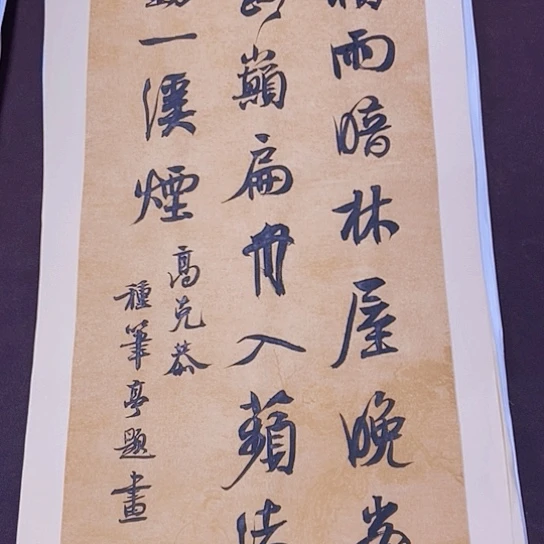 雨暗林屋晚
巔扁舟入蘋
一溪煙
高克恭
種筆亭題畫